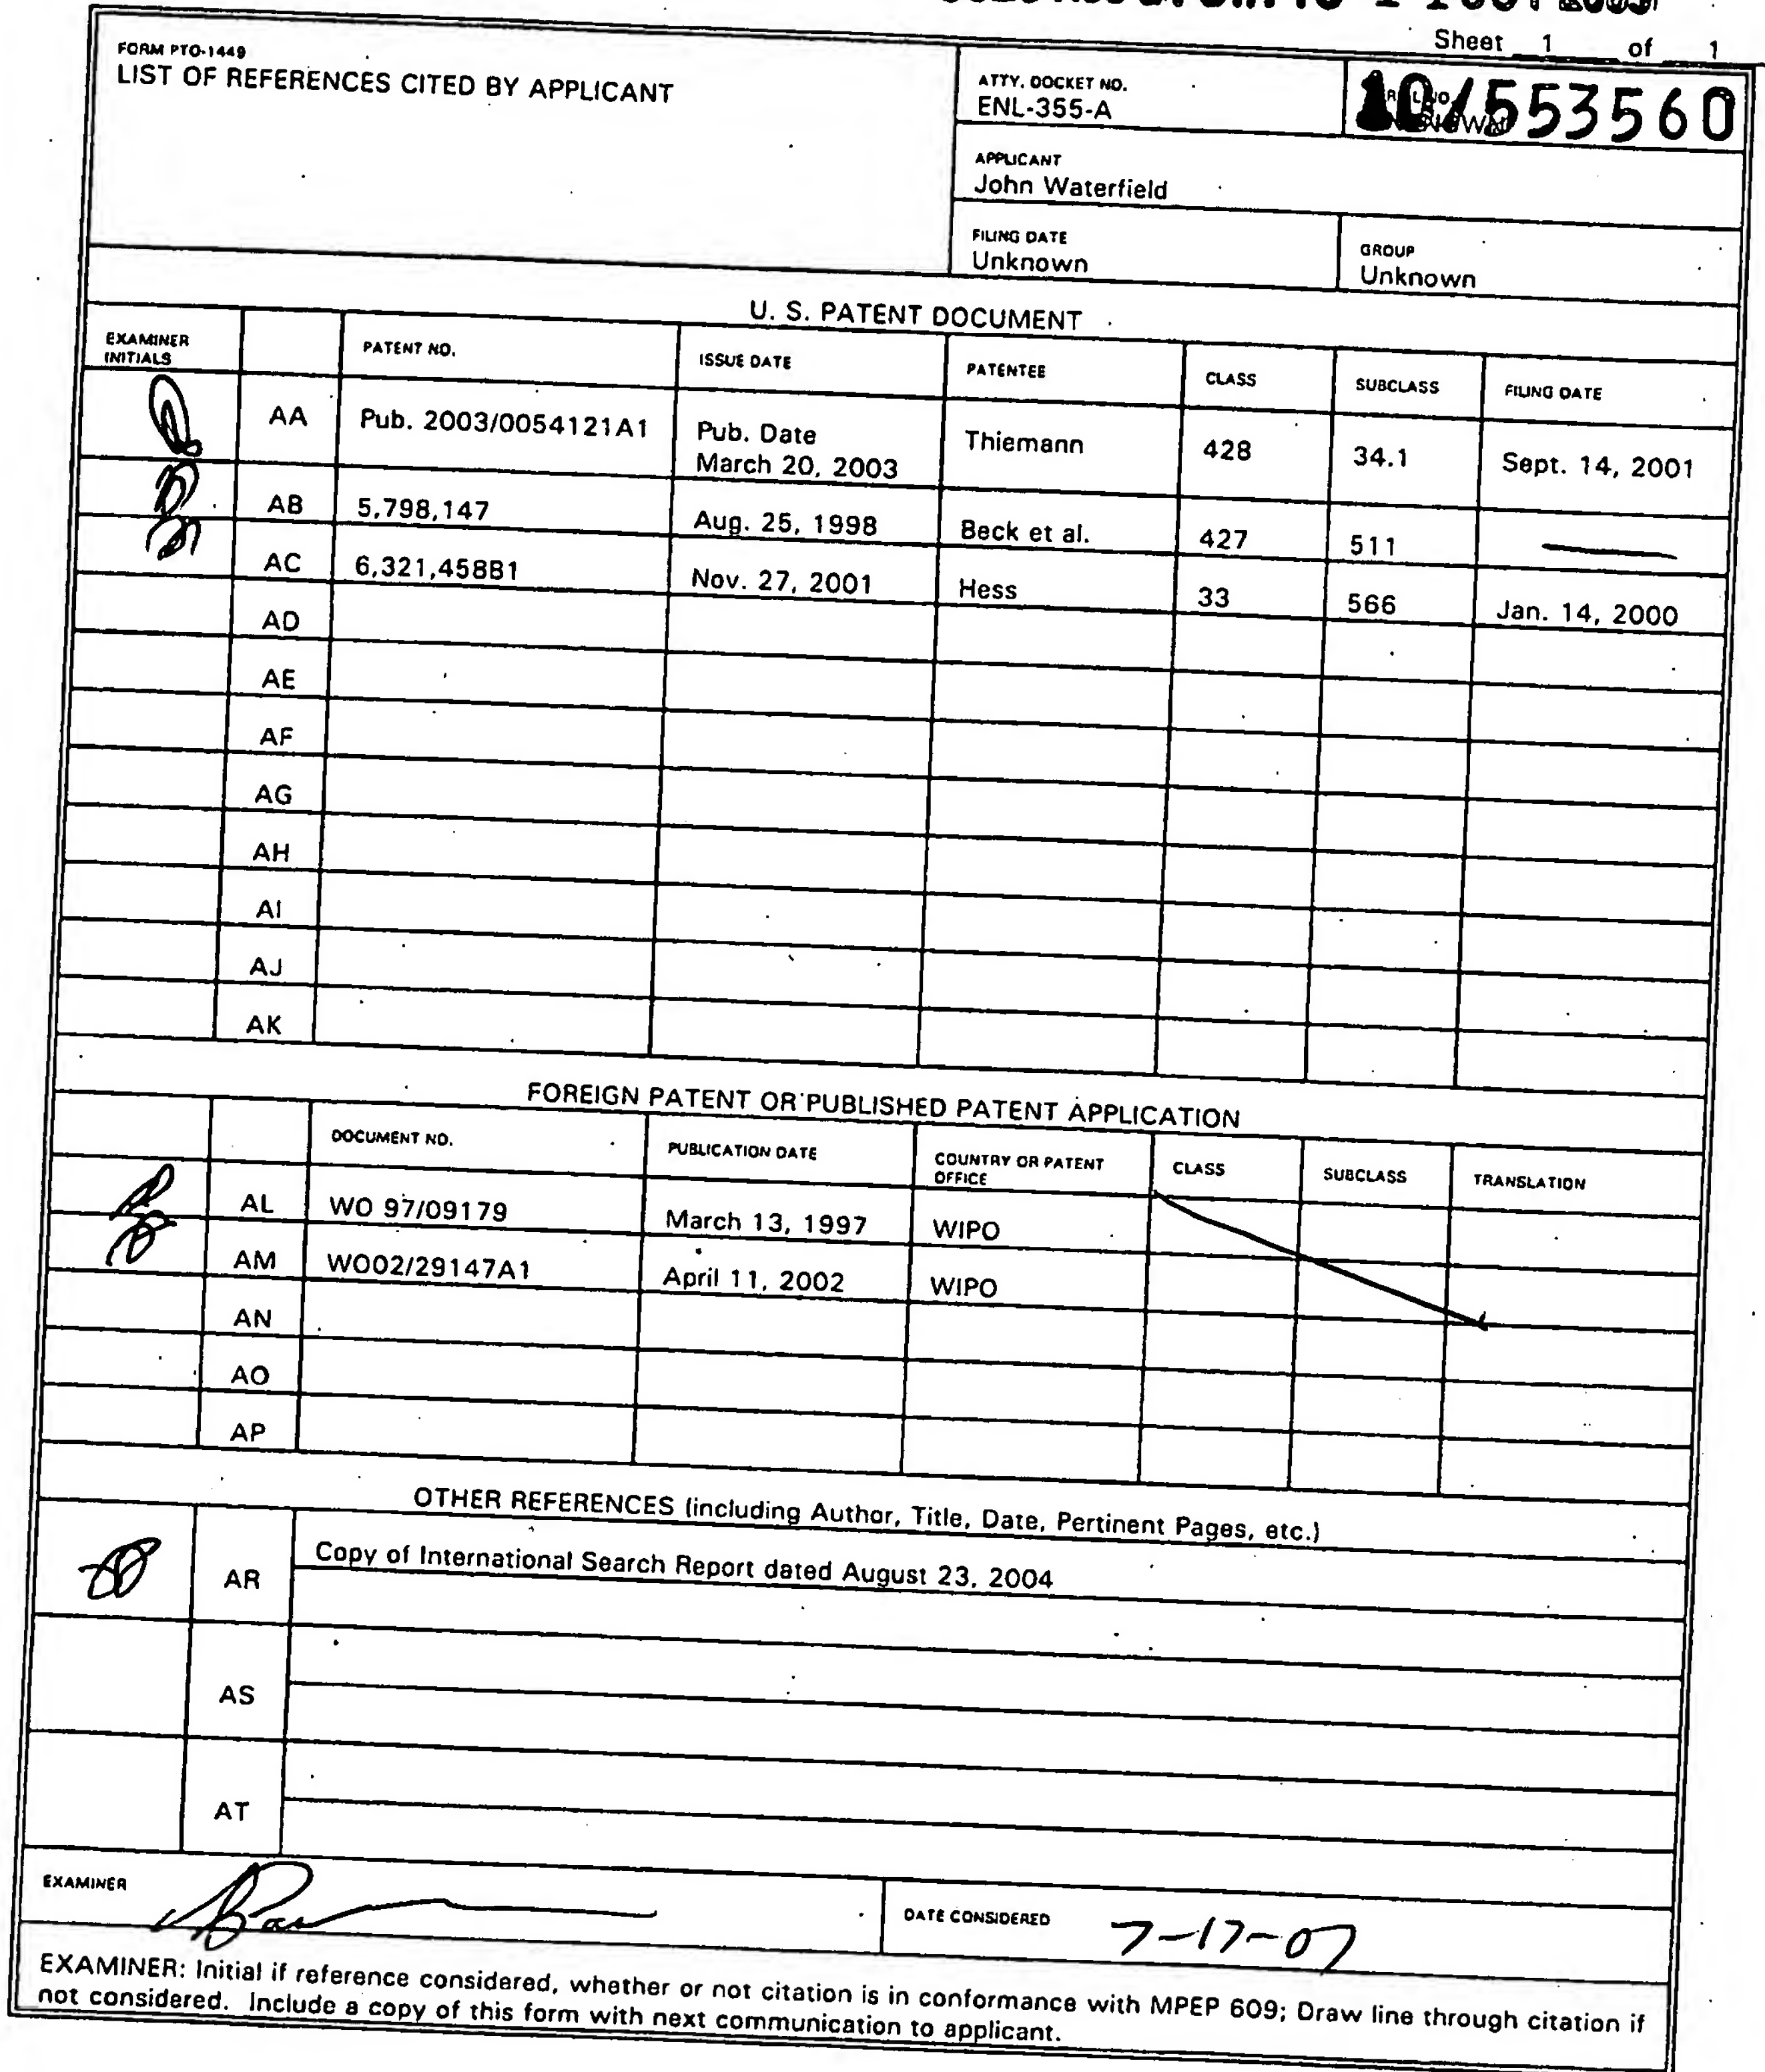 Sheet 1 of 1
FORM PTO-1449
LIST OF REFERENCES CITED BY APPLICANT
ATTY. DOCKET NO.
ENL-355-A
10/553560
APPLICANT
John Waterfield
FILING DATE
Unknown
GROUP
Unknown
U. S. PATENT DOCUMENT
EXAMINER INITIALS PATENT NO. ISSUE DATE PATENTEE CLASS SUBCLASS FILING DATE
AA Pub. 2003/0054121A1 Pub. Date March 20, 2003 Thiemann 428 34.1 Sept. 14, 2001
AB 5,798,147 Aug. 25, 1998 Beck et al. 427 511
AC 6,321,458B1 Nov. 27, 2001 Hess 33 566 Jan. 14, 2000
AD
AE
AF
AG
AH
AI
AJ
AK
FOREIGN PATENT OR PUBLISHED PATENT APPLICATION
DOCUMENT NO. PUBLICATION DATE COUNTRY OR PATENT OFFICE CLASS SUBCLASS TRANSLATION
AL WO 97/09179 March 13, 1997 WIPO
AM WO02/29147A1 April 11, 2002 WIPO
AN
AO
AP
OTHER REFERENCES (including Author, Title, Date, Pertinent Pages, etc.)
AR Copy of International Search Report dated August 23, 2004
AS
AT
EXAMINER
DATE CONSIDERED 7-17-07
EXAMINER: Initial if reference considered, whether or not citation is in conformance with MPEP 609; Draw line through citation if
not considered. Include a copy of this form with next communication to applicant.